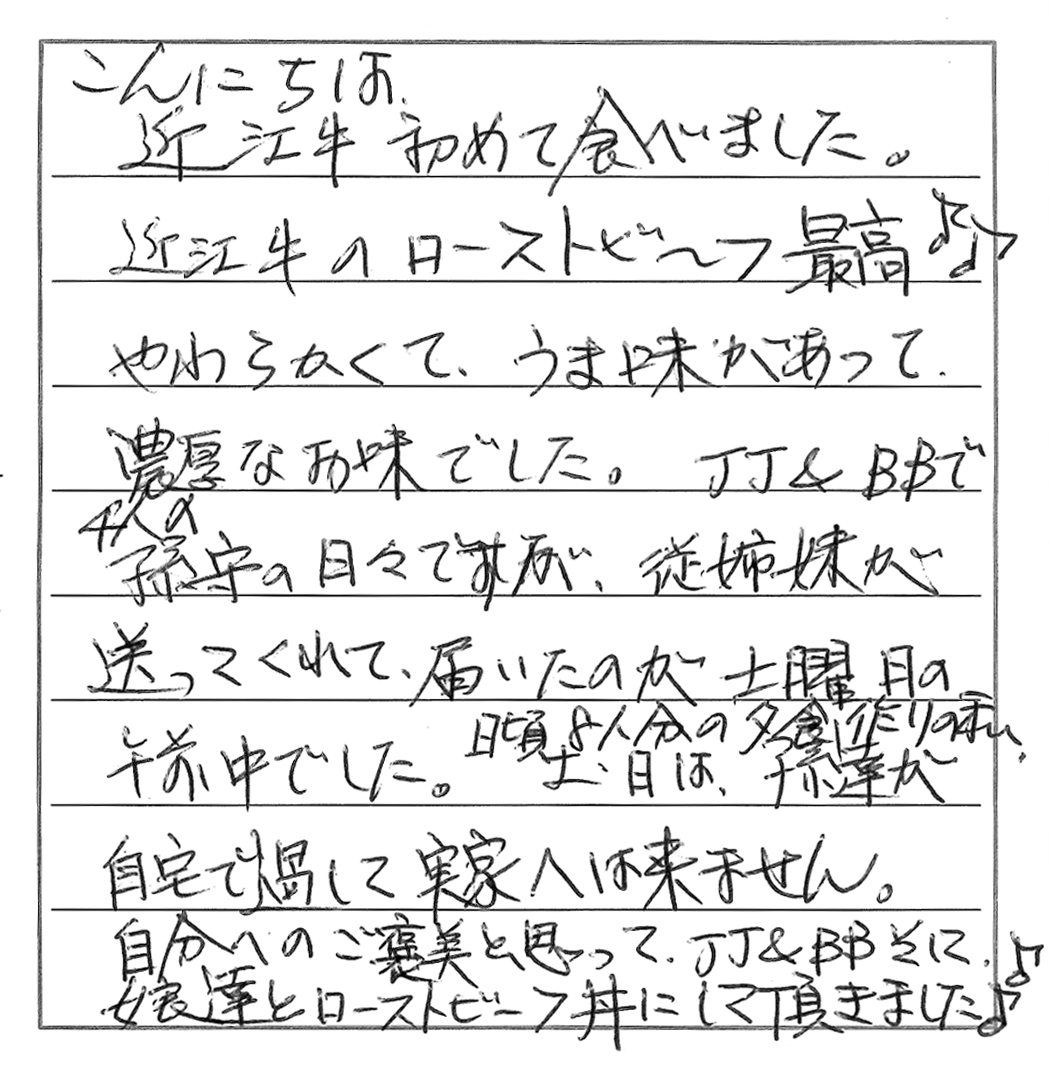 こんにちは、
近江牛初めて食べました。
近江牛のローストビーフ最高♪♪
やわらかくて、うま味があって、
濃厚なお味でした。 JJ&BBで
4人の
孫守の日々ですが、従姉妹が
送ってくれて、届いたのが土曜日の
日頃8人分の夕食作りの私、
午前中でした。土・日は、孫達が
自宅で過して実家へは来ません。
自分へのご褒美と思って、JJ&BBそに、♪
娘達とローストビーフ丼にして頂きました♪